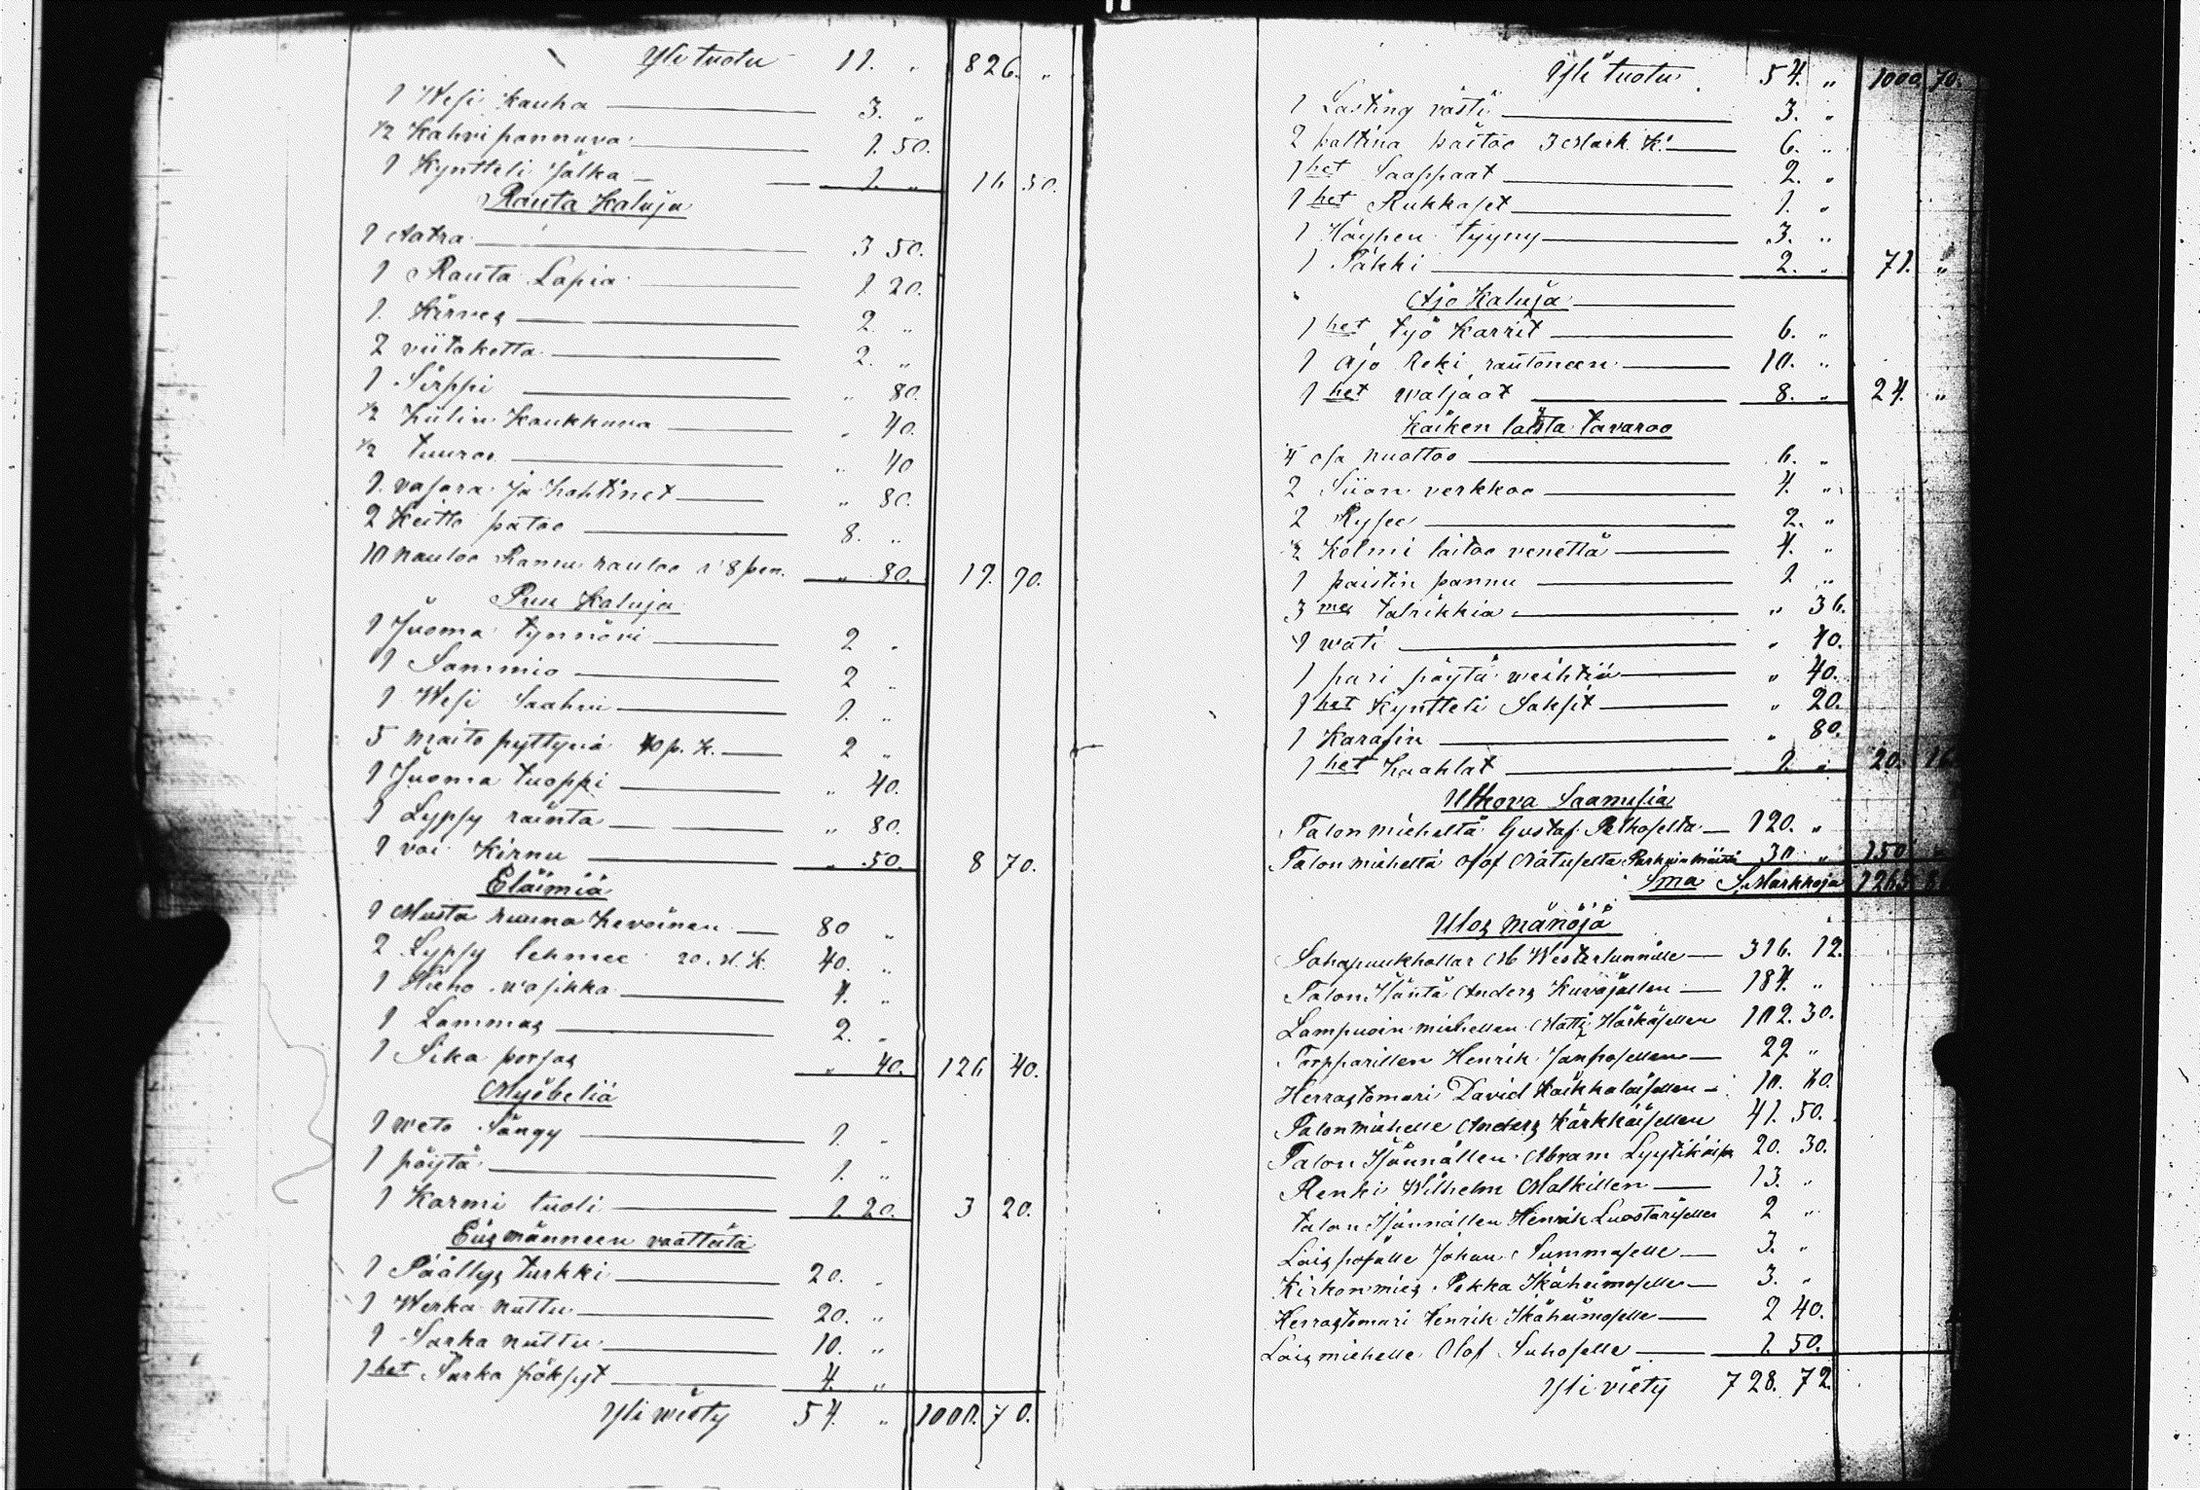 Yli tuotu 11. „ 826. „
1 Wesi kauha 3. „
1/2 Kahvi pannuva 1. 50.
1 Kyntteli jalka 1. „ 16 50.
Rauta Kaluja
1 Aatra 3 50.
1 Rauta Lapia 1 20.
1 Kirves 2. „
2 viitaketta 2. „
1 Sirppi „ 80.
1/2 hiilin Koukkuva „ 40.
1/2 tuuraa „ 40
1 vasara ja hohtinet „ 80.
2 Keitto pataa 8. „
10 naulaa Rannu raulaa à 8 pen. „ 80. 19. 90.
Puu Kaluja
1 Juoma tynnöri 2 „
1 Sammio 2 „
1 Wesi Saahvi 1. „
5 maito pyttyvä 40 p. K. 2 „
1 Juoma tuoppi „ 40.
1 Lypsy rainta „ 80.
1 voi Kirnu „ 50. 8 70.
Eläimiä
1 Musta ruuna hevoinen 80 „
2 Lypsy lehmee 20. M. K. 40. „
1 Hieho wasikka 4. „
1 Lammas 2. „
1 Sika porsas „ 40. 126 40.
Myöbeliä
1 weto Sängy 1. „
1 pöytä 1. „
1 Karmi tuoli 1. 20. 3 20.
Eus männeen vaatteita
1 Päällys turkki 20. „
1 Werka nuttu 20. „
1 Sarka nuttu 10. „
1 het Sarka pöksyt 4. „
Yli wiety 54 „ 1000. 70.
Yli tuotu 54. „ 1000 70.
1 Lasting västi 3. „
2 paltina paitaa 3 Mark. K. 6. „
1 het Saappaat 2. „
1 het Rukkaset 1. „
1 Höyhen tyyny 3. „
1 Täkki 2. „ 71. „
Ajo Kaluja
1 het työ Karrit 6. „
1 ajo Reki rautoneen 10. „
1 het waljaat 8. „ 24. „
Kaiken laista tavaraa
4 osa nuottaa 6. „
2 Siian verkkoa 4. „
2 Rysee 2. „
1/2 Kolmi laitaa venettä 4. „
1 paistin pannu 1 „
3 mes talrikkia „ 36.
1 wati „ 40.
1 pari pöytä weihtiä „ 40.
1 het Kyntteli Saksit „ 20.
1 Karafin „ 80.
1 het haahlat 1. „ 20. 16
Ulkova Saamisia
Talon mieheltä Gustaf Pelkoselta 120. „
Talon mieheltä Olof Natuselta 30 „ 150
Sma S. Markkoja 1265 8
Ulos mänöjä
Sahapuukhollar Ab Westerlunnille 316. 12.
Talon Isäntä Anders Kuvajallen 184. „
Lampuoin miehellen Matts Härkösellen 102. 30.
Torpparillen Henrik Janhosellen 29 „
Herrastomari David Kaikkolaisellen 10. 60.
Talon miehelle Anders Kärkkäisellen 41. 50.
Talon Isännällen Abram Lyytikäis 20. 30.
Renki Wilhelm Malkillen 13. „
talon Isännällen Henrik Luostarisellen 2 „
Lois pojalle Johan Summaselle 3. „
Kirkonmies Pekka Ikäheimoselle 3. „
Herrastomari Henrik Ikäheimoselle 2 40.
Lois miehelle Olof Suhoselle 1. 50.
Yli viety 728. 72.